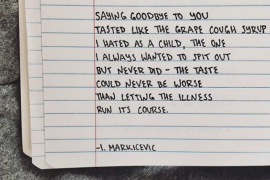 SAYING GOODBYE TO YOU
TASTED LIKE THE GRAPE COUGH SYRUP
I HATED AS A CHILD, THE ONE
I ALWAYS WANTED TO SPIT OUT
BUT NEVER DID - THE TASTE
COULD NEVER BE WORSE
THAN LETTING THE ILLNESS
RUN ITS COURSE.
-I. MARKICEVIC